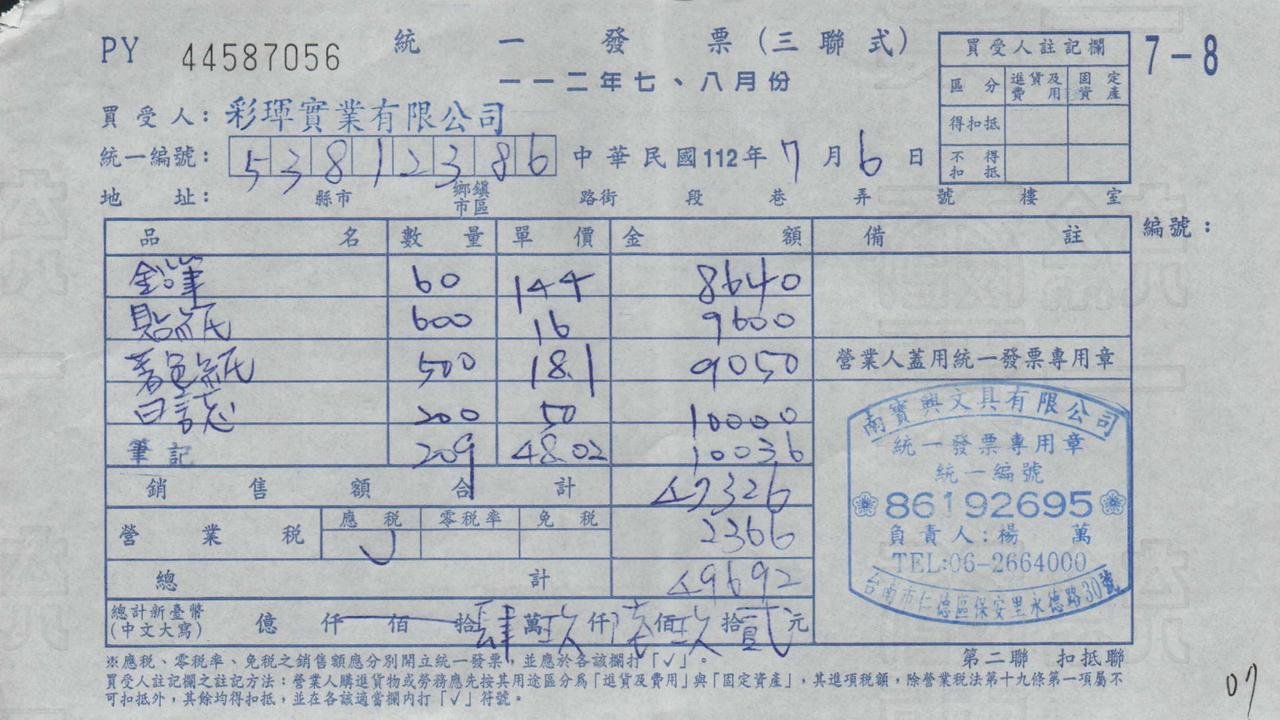 PY 44587056 統一發票(三聯式) 7-8
一一二年七、八月份
買受人註記欄
區分 進貨及費用 固定資產
得扣抵
不得扣抵
買受人: 彩琿實業有限公司
統一編號: 53812386 中華民國112年7月6日
地址: 縣市 鄉鎮市區 路街 段 巷 弄 號 樓 室
品名 數量 單價 金額 備註 編號:
鉛筆 60 144 8640
貼紙 600 16 9600
著色紙 500 18.1 9050 營業人蓋用統一發票專用章
日誌 200 50 10000
筆記 209 48.02 10036
銷售額合計 47326
營業稅 應稅 零稅率 免稅 2366
總計 49692
總計新臺幣(中文大寫) 億 仟 佰 拾肆萬玖仟陸佰玖拾貳元
南寶興文具有限公司
統一發票專用章
統一編號
86192695
負責人:楊 萬
TEL:06-2664000
台南市仁德區保安里永德路30號
※應稅、零稅率、免稅之銷售額應分別開立統一發票,並應於各該欄打「✓」。 第二聯 扣抵聯
買受人註記欄之註記方法:營業人購進貨物或勞務應先按其用途區分為「進貨及費用」與「固定資產」,其進項稅額,除營業稅法第十九條第一項屬不
可扣抵外,其餘均得扣抵,並在各該適當欄內打「✓」符號。
07